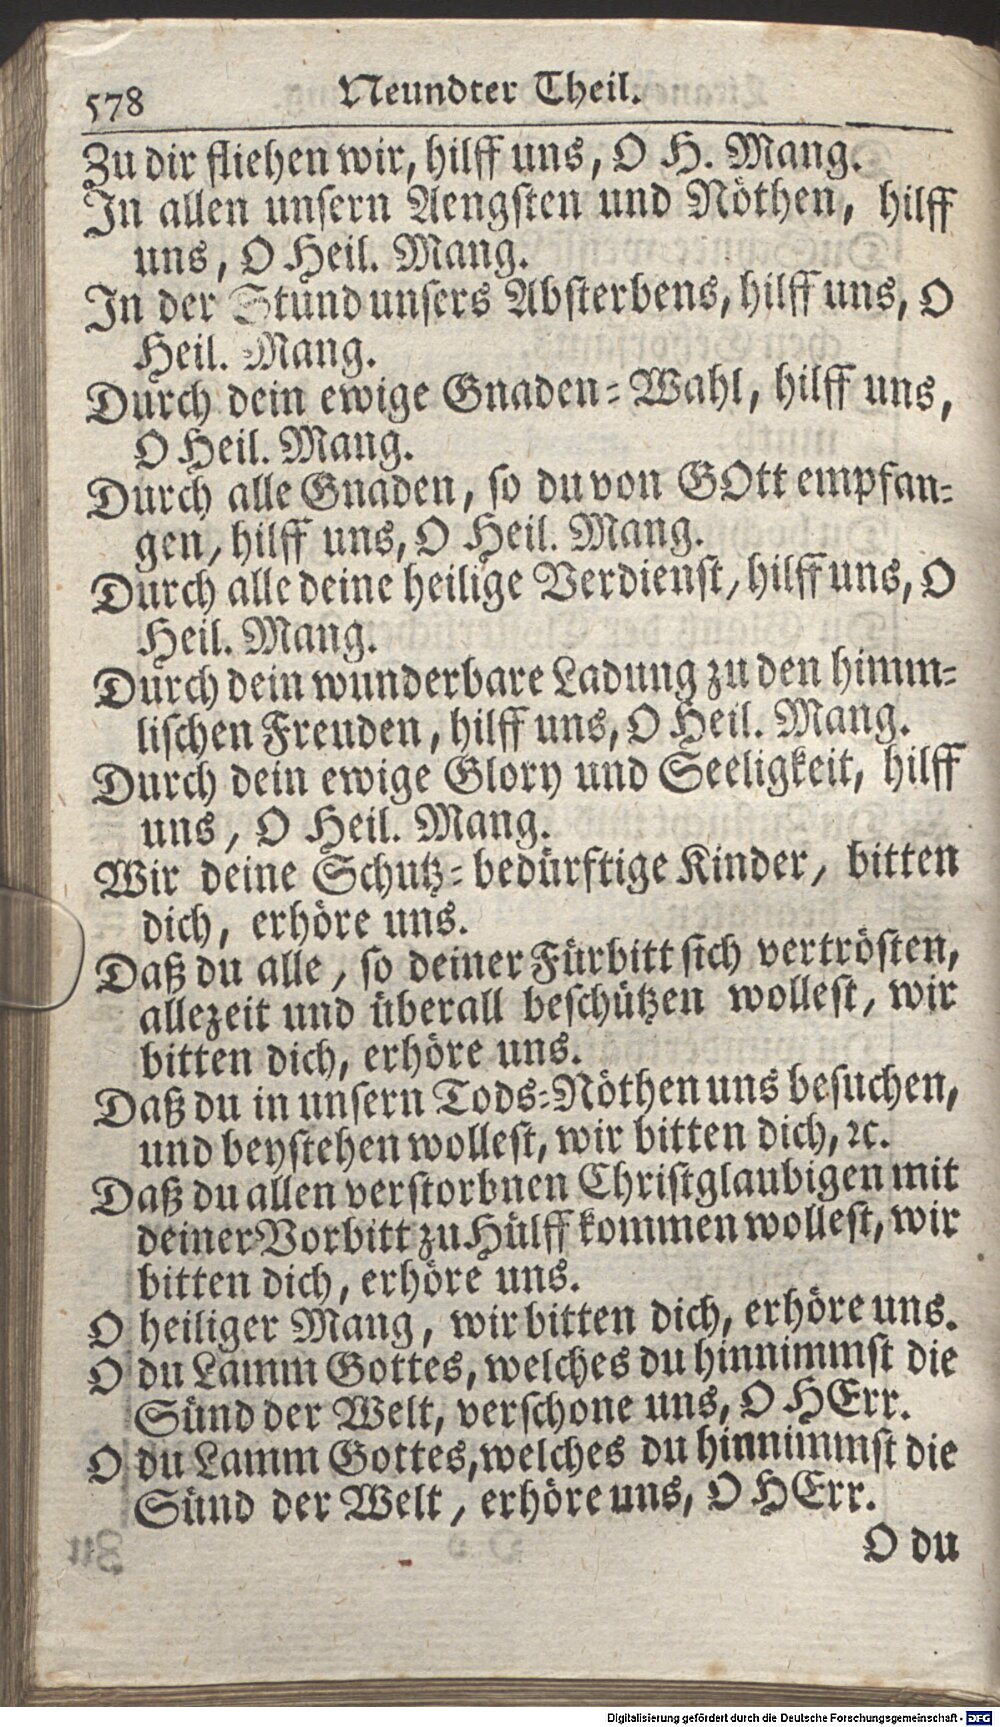 578 Neundter Theil.
Zu dir fliehen wir, hilff uns, O H. Mang.
In allen unsern Aengsten und Nöthen, hilff
uns, O Heil. Mang.
In der Stund unsers Absterbens, hilff uns, O
Heil. Mang.
Durch dein ewige Gnaden-Wahl, hilff uns,
O Heil. Mang.
Durch alle Gnaden, so du von GOtt empfan-
gen, hilff uns, O Heil. Mang.
Durch alle deine heilige Verdienst, hilff uns, O
Heil. Mang.
Durch dein wunderbare Ladung zu den himm-
lischen Freuden, hilff uns, O Heil. Mang.
Durch dein ewige Glory und Seeligkeit, hilff
uns, O Heil. Mang.
Wir deine Schutz-bedürftige Kinder, bitten
dich, erhöre uns.
Daß du alle, so deiner Fürbitt sich vertrösten,
allezeit und überall beschützen wollest, wir
bitten dich, erhöre uns.
Daß du in unsern Tods-Nöthen uns besuchen,
und beystehen wollest, wir bitten dich, ꝛc.
Daß du allen verstorbnen Christglaubigen mit
deiner Vorbitt zu Hülff kommen wollest, wir
bitten dich, erhöre uns.
O heiliger Mang, wir bitten dich, erhöre uns.
O du Lamm Gottes, welches du hinnimmst die
Sünd der Welt, verschone uns, O HErr.
O du Lamm Gottes, welches du hinnimmst die
Sünd der Welt, erhöre uns, O HErr.
O du
Digitalisierung gefördert durch die Deutsche Forschungsgemeinschaft - DFG